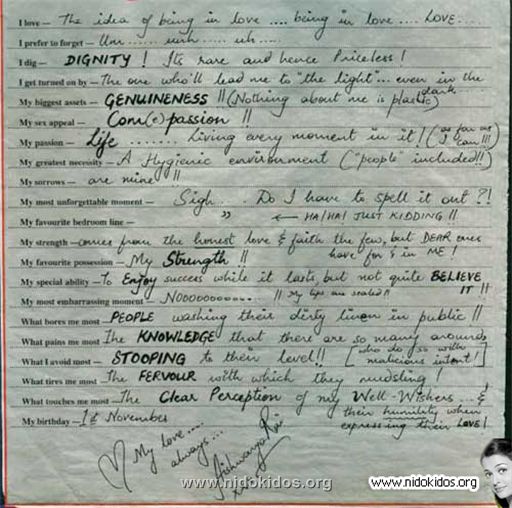 I love – The idea of being in love .... being in love .... LOVE.....
I prefer to forget – Um ...... umh ..... uh .....
I dig – DIGNITY ! Its rare and hence Priceless !
I get turned on by – The one who'll lead me to "the light"... even in the dark...
My biggest assets – GENUINENESS !! (Nothing about me is plastic)
My sex appeal – Com(e)passion !!
My passion – Life ........ Living every moment in it! (as far as I can!!!)
My greatest necessity – A Hygienic environment ("people" included!!)
My sorrows – are mine !!
My most unforgettable moment – Sigh... Do I have to spell it out ?!
My favourite bedroom line – " ← HA!HA! JUST KIDDING !!
My strength – comes from the honest love & faith the few, but DEAR ones have for & in ME !
My favourite possession – My Strength !!
My special ability – To Enjoy success while it lasts, but not quite BELIEVE IT !!
My most embarrassing moment – Noooooooo.... !! My lips are sealed !!
What bores me most – PEOPLE washing their dirty linen in public !!
What pains me most – The KNOWLEDGE that there are so many around, [who do so with malicious intent!]
What I avoid most – STOOPING to their level!!
What tires me most – The FERVOUR with which they mudsling !
What touches me most – The Clear Perception of my Well-Wishers ...& their humility when expressing their Love!
My birthday – 1st November
My love....
always...
Aishwarya Rai
www.nidokidos.org
www.nidokidos.org